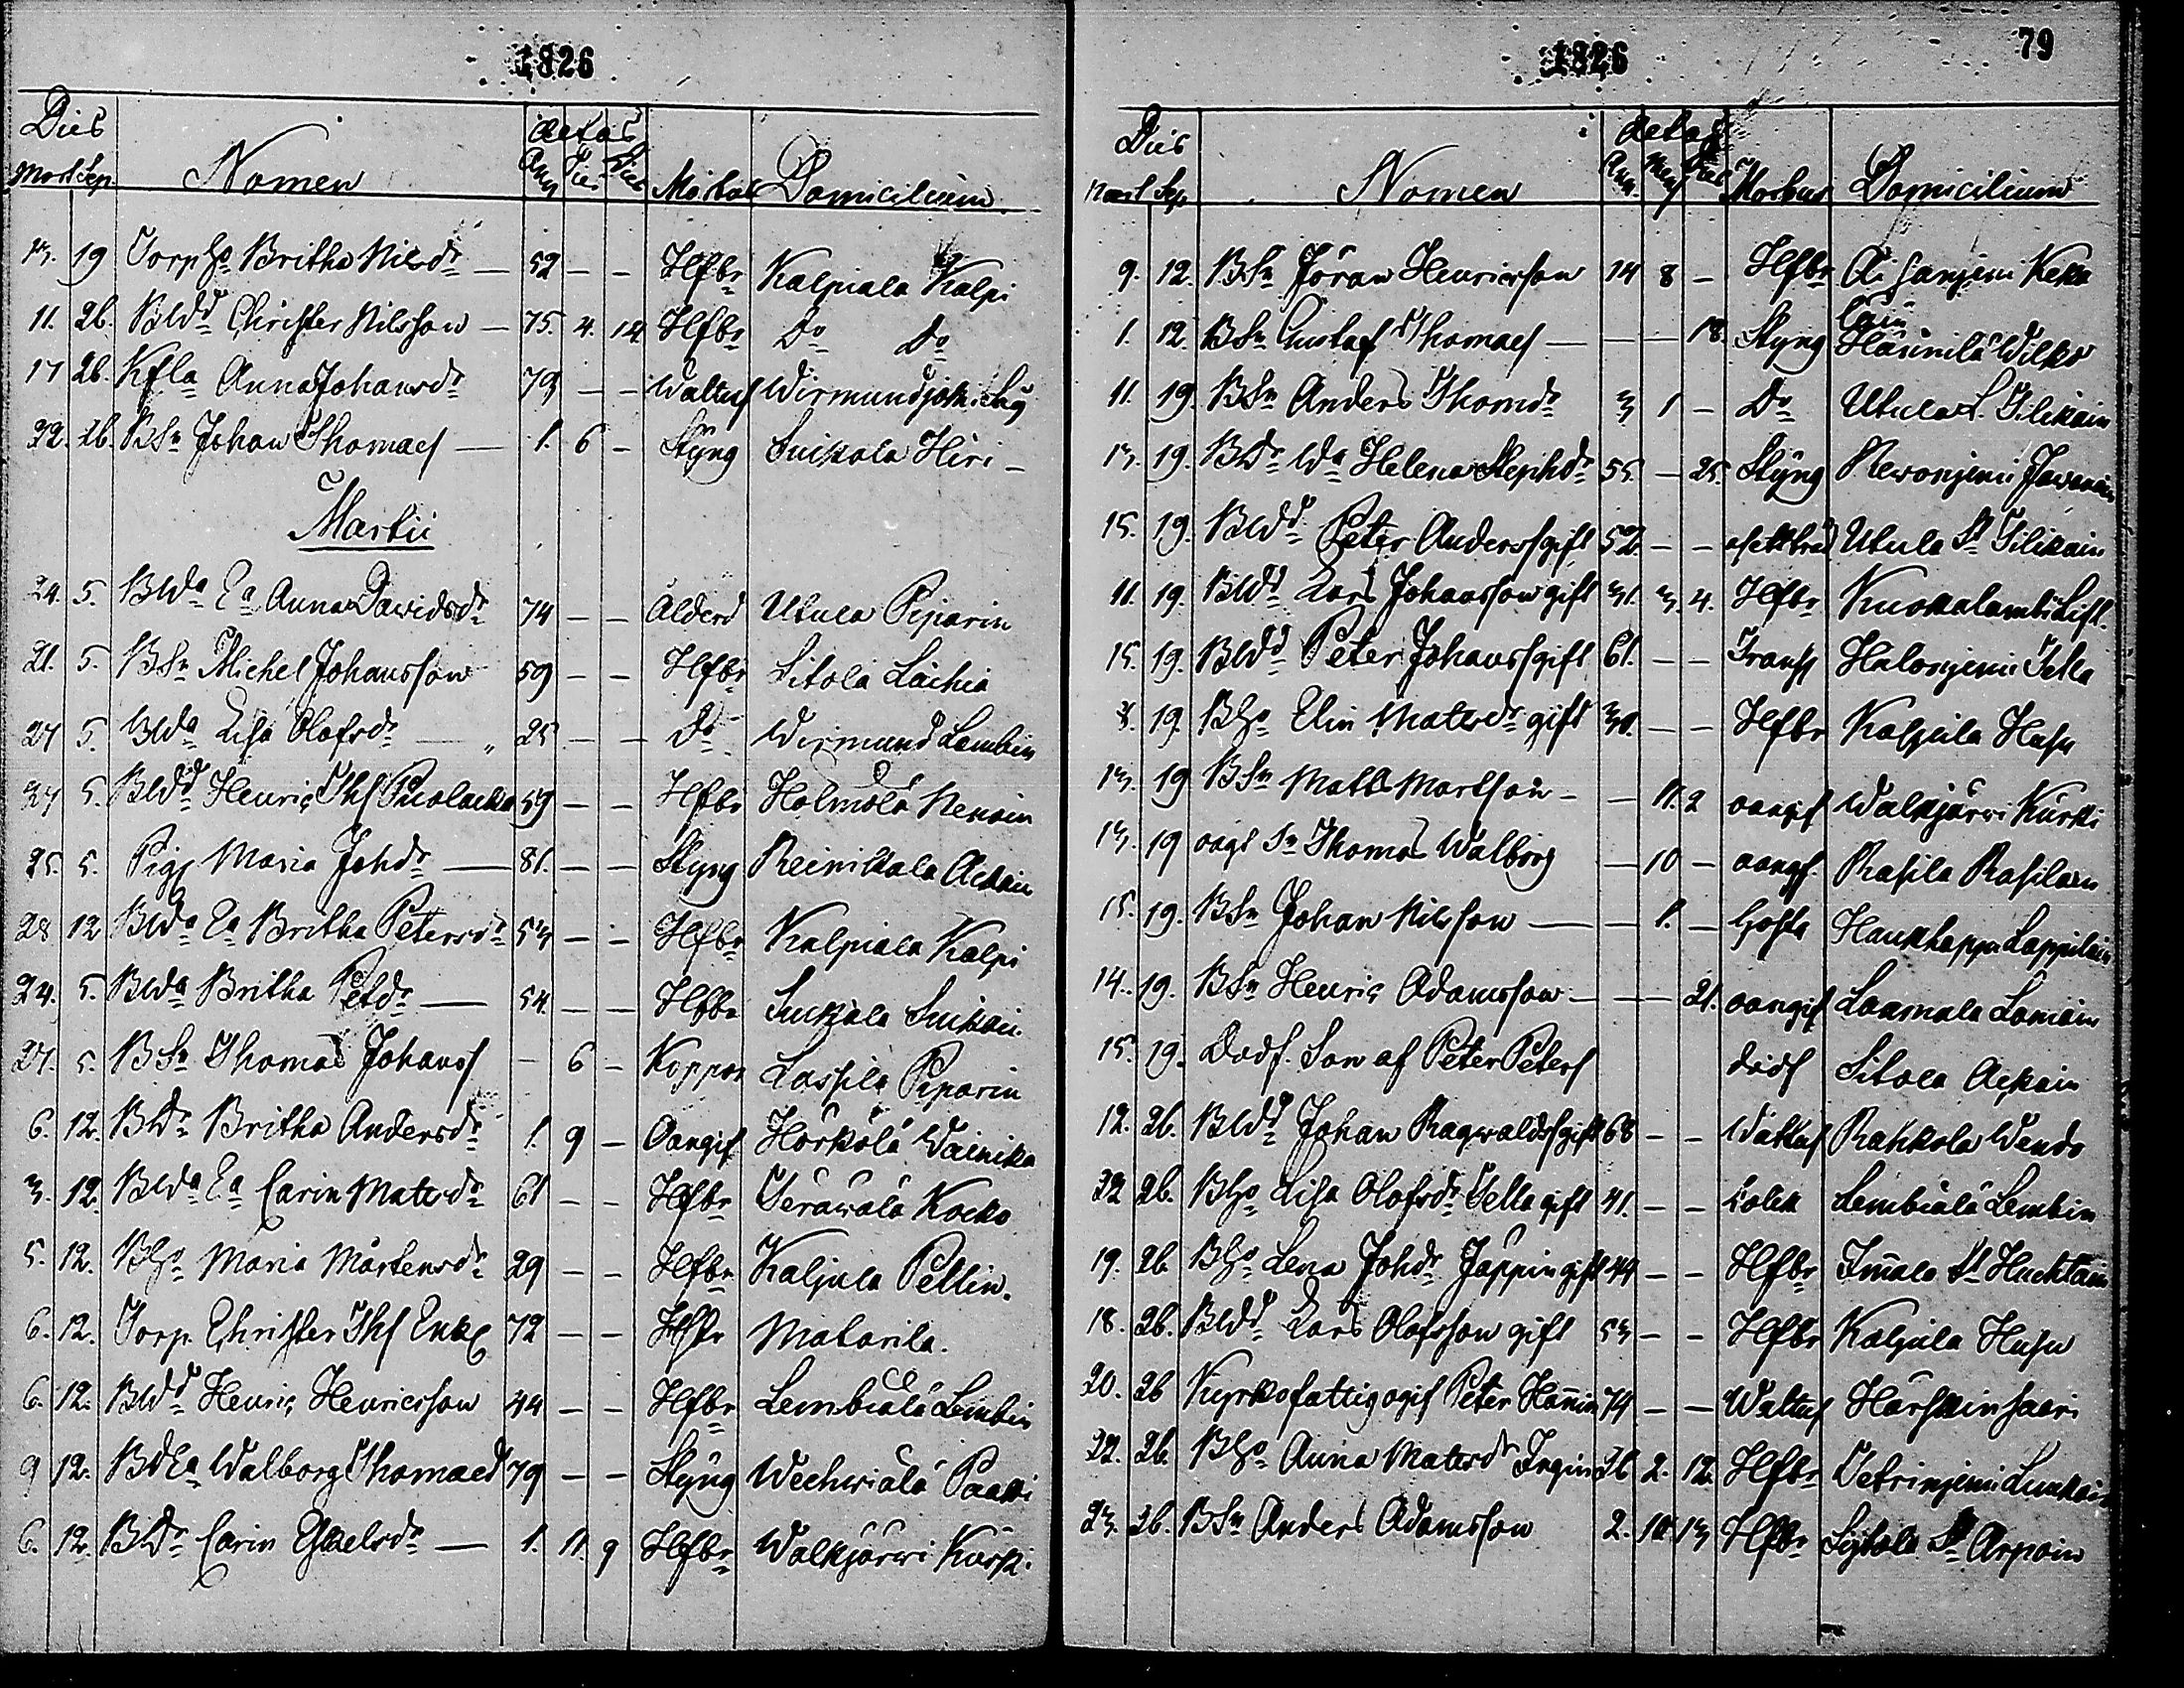 1826
Dies Nomen Aetas Morbus Domicilium
Mort Sep. Ann Dies
13. 19 Torp Hu Britha Nilsdr — 52 — — Hlfbr Kalpiala Kalpi
11. 26. BWdd Christer Nilsson — 75. 4. 14 Hlfbr Do Do
17 26. Kfla Anna Johansdr 79 — — Wattus Wirmundjoki
22. 26. BSn Johan Thomas — 1. 6 — Styng Suikola Hiri —
Martii
24. 5. BWda Ea Anna Davidsdr 74 — — Ålderd Utula Piparin
21. 5. BSn Michel Johansson 59 — — Hlfbr Sitola
27 5. BWda Lisa Olofsdr — 25 — — Do Wirmund Lambin
27 5. BWdd Henric Ths 59 — — Hlfbr Holmola
25. 5. Pig Maria Johdr — 81. — — Styng Reinikkala Ackain
28 12 BWda Ea Britha Petersdr 53 — — Hlfbr Kalpiala Kalpi
24. 5. BWda Britha Petdr — 54. — — Hlfbr Suikain
27. 5. BSn Thomas Johans — 6 — Koppor Lassila Piparin
6. 12. BDr Britha Andersdr 1. 9 — Oangif Hörkölä Wainika
3. 12. BWda Ea Carin Matsdr 61 — — Hlfbr Teräwälä Kocko
5. 12. BHu Maria Mårtensdr 29 — — Hlfbr Kaljula Pellin.
6. 12. Torp. Christer Ths 72 — — Hlfbr Matarila.
6. 12. BWdd Henric Henricsson 44 — — Hlfbr Lembiälä Lembin
9 12. Walborg Thomaed 79 — — Styng Wechwiälä Paaki
6. 12. BDr Carin Eskelsdr — 1. 11. 9 Hlfbr Walkjärwi Kurki.
1826 79
Dies Nomen Aetas Morbus Domicilium
Mort Sep. Ann. Men Dies
9. 12. BSn Jöran Henricsson 14 8 — Hlfbr
1. 12. BSn Gustaf Thomas — — — 18. Styng Wilko
11. 19. BSn Anders Thomdr 3 1 — Do Utula L. Tilikain
13. 19. BDr Wa Helena Stephdr 55. — 25. Styng Neronjemi Jawanain
15. 19. BWdd Peter Anderss gift 52. — — Utula St Tilikain
11. 19. BWdd Lars Johansson gift 31. 3 4. Hlfbr Kuokalambi
15. 19. BWdd Peter Johanss gift 61. — — Transs Halonjemi
8. 19. BHu Elin Matsdr gift 30. — — Hlfbr Kaljula Husu
13. 19 BSn Matts Martson — — 11. 2 oangif Walkjärwi Kurki
13. 19 oagt Sn Thomas Walborg — 10 — oangf. Rasila Rasilain
15. 19. BSn Johan Nilsson — — 1. — Hosta Haukkapp Lappalain
14. 19. BSn Henric Adamsson — — — 21. oangif Laamala Lamain
15. 19. Dödf. Son af Peter Peters dödf Sitola Ackain
12. 26. BWdd Johan Ragwalds gift 68 — — Wattus Rakkola
22 26. BHu Lisa Olofsdr Tella gift 41. — — kolik Lembiälä Lembin
19. 26 BHu Lena Johdr Jäppin gift 44 — — Hlfbr Imala St Huchtain
18. 26. BWdd Lars Olofsson gift 53 — — Hlfbr Kaljula Husu
20. 26 Kyrkofattig ogif Peter 74 — — Wattus Härskinsaari
22. 26. BHu Anna Matsdr 2. 12. Hlfbr
23. 26. BSn Anders Adamsson 2. 10 13 Hlfbr St Arpain